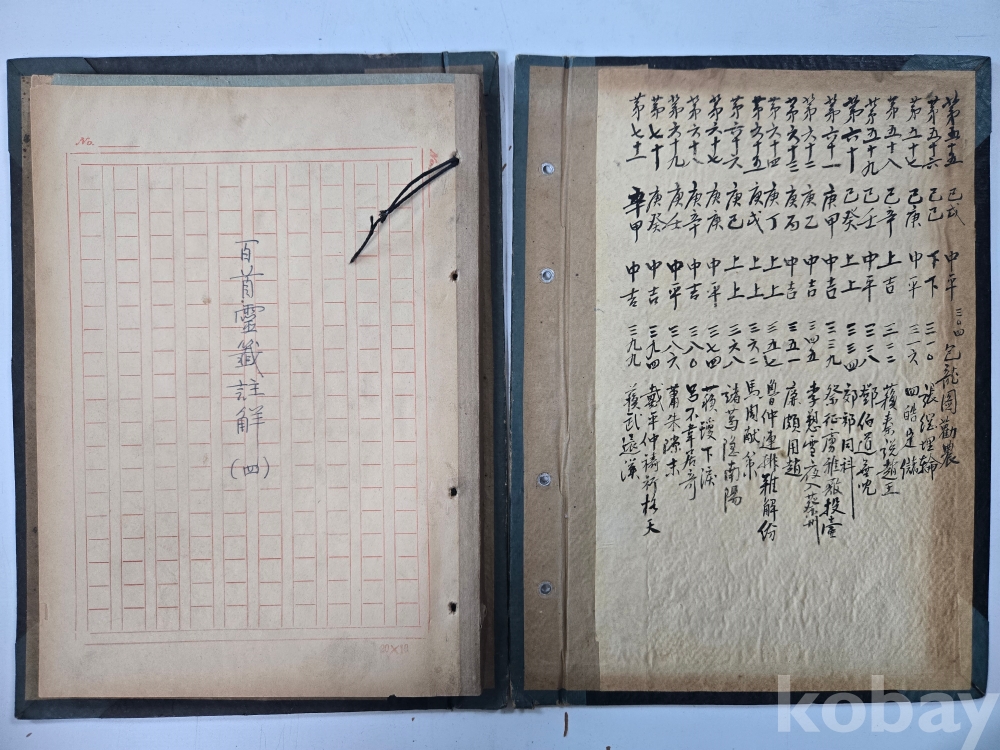 No.
百首靈籤註解(四)
20×10
第五十五 己戊 中平 三〇四 包龍图勸農
第五十六 己己 下下 三一〇 張綱埋輪
第五十七 己庚 中平 三一六 四皓定儲
第五十八 己辛 上吉 三二二 蘇秦說趙王
第五十九 己壬 中平 三二八 鄧伯道無兒
第六十 己癸 上上 三三四 郊祁同科
第六十一 庚甲 中吉 三三九 祭征虜雅歌投壺
第六十二 庚乙 中吉 三四五 李愬雪夜入蔡州
第六十三 庚丙 中吉 三五一 廉頗用趙
第六十四 庚丁 上上 三五七 魯仲連排難解份
第六十五 庚戊 上上 三六二 馬周献策
第六十六 庚己 上上 三六八 諸葛隱南陽
第六十七 庚庚 中平 三七四 蘓瓊下淚
第六十八 庚辛 中吉 三八〇 呂不韋居奇
第六十九 庚壬 中平 三八六 蕭朱隙末
第七十 庚癸 中吉 三九四 戴平仲禱祈格天
第七十一 辛甲 中吉 三九九 蘇武還漢
kobay